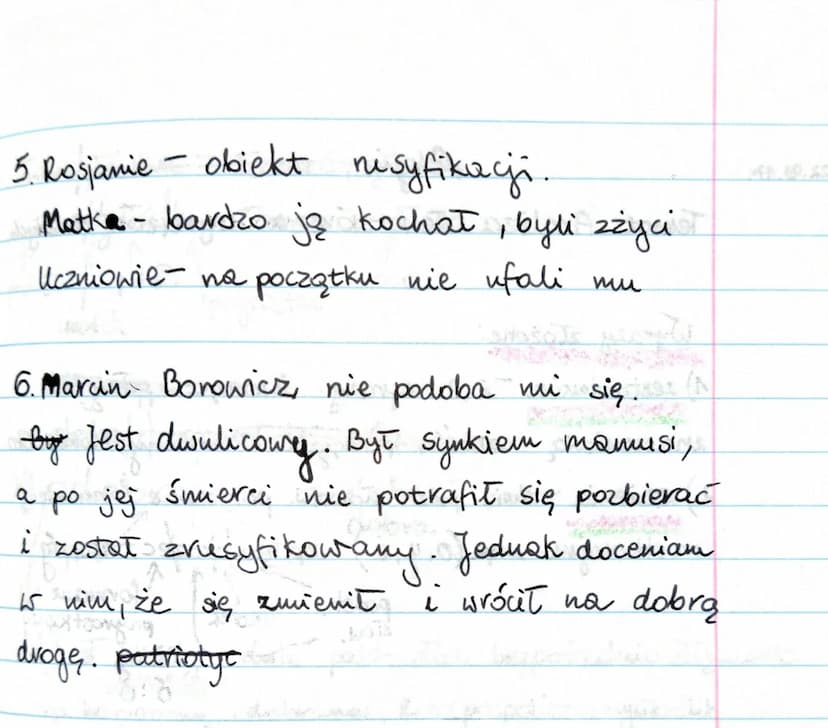 5. Rosjanie – obiekt rusyfikacji.
Matka – bardzo ją kochał, byli zżyci
Uczniowie – na początku nie ufali mu
6. Marcin Borowicz, nie podoba mi się.
By Jest dwulicowy. Był synkiem mamusi,
a po jej śmierci nie potrafił się pozbierać
i został zrusyfikowany. Jednak doceniam
w nim, że się zmienił i wrócił na dobrą
drogę. patriotyc